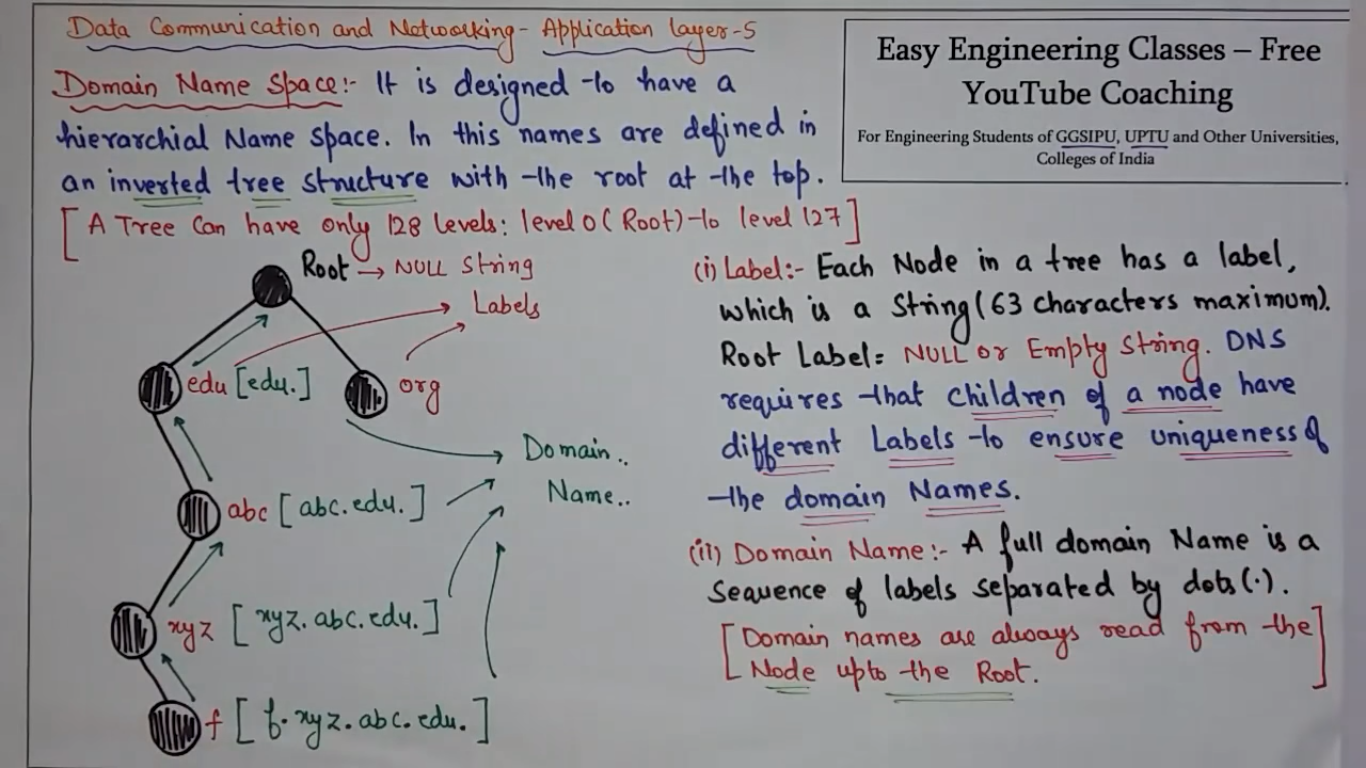 Data Communication and Networking - Application layer-5
Easy Engineering Classes – Free
YouTube Coaching
For Engineering Students of GGSIPU, UPTU and Other Universities,
Colleges of India
Domain Name Space:- It is designed to have a
hierarchial Name space. In this names are defined in
an inverted tree structure with the root at the top.
[A Tree Can have only 128 levels: level 0 (Root) to level 127]
Root → NULL String
Labels
edu [edu.]
org
Domain..
Name..
abc [abc.edu.]
xyz [xyz.abc.edu.]
f [f.xyz.abc.edu.]
(i) Label:- Each Node in a tree has a label,
which is a String (63 characters maximum).
Root Label = NULL or Empty String. DNS
requires that children of a node have
different Labels to ensure uniqueness of
the domain Names.
(ii) Domain Name:- A full domain Name is a
Sequence of labels separated by dots (.).
[Domain names are always read from the
Node upto the Root.]